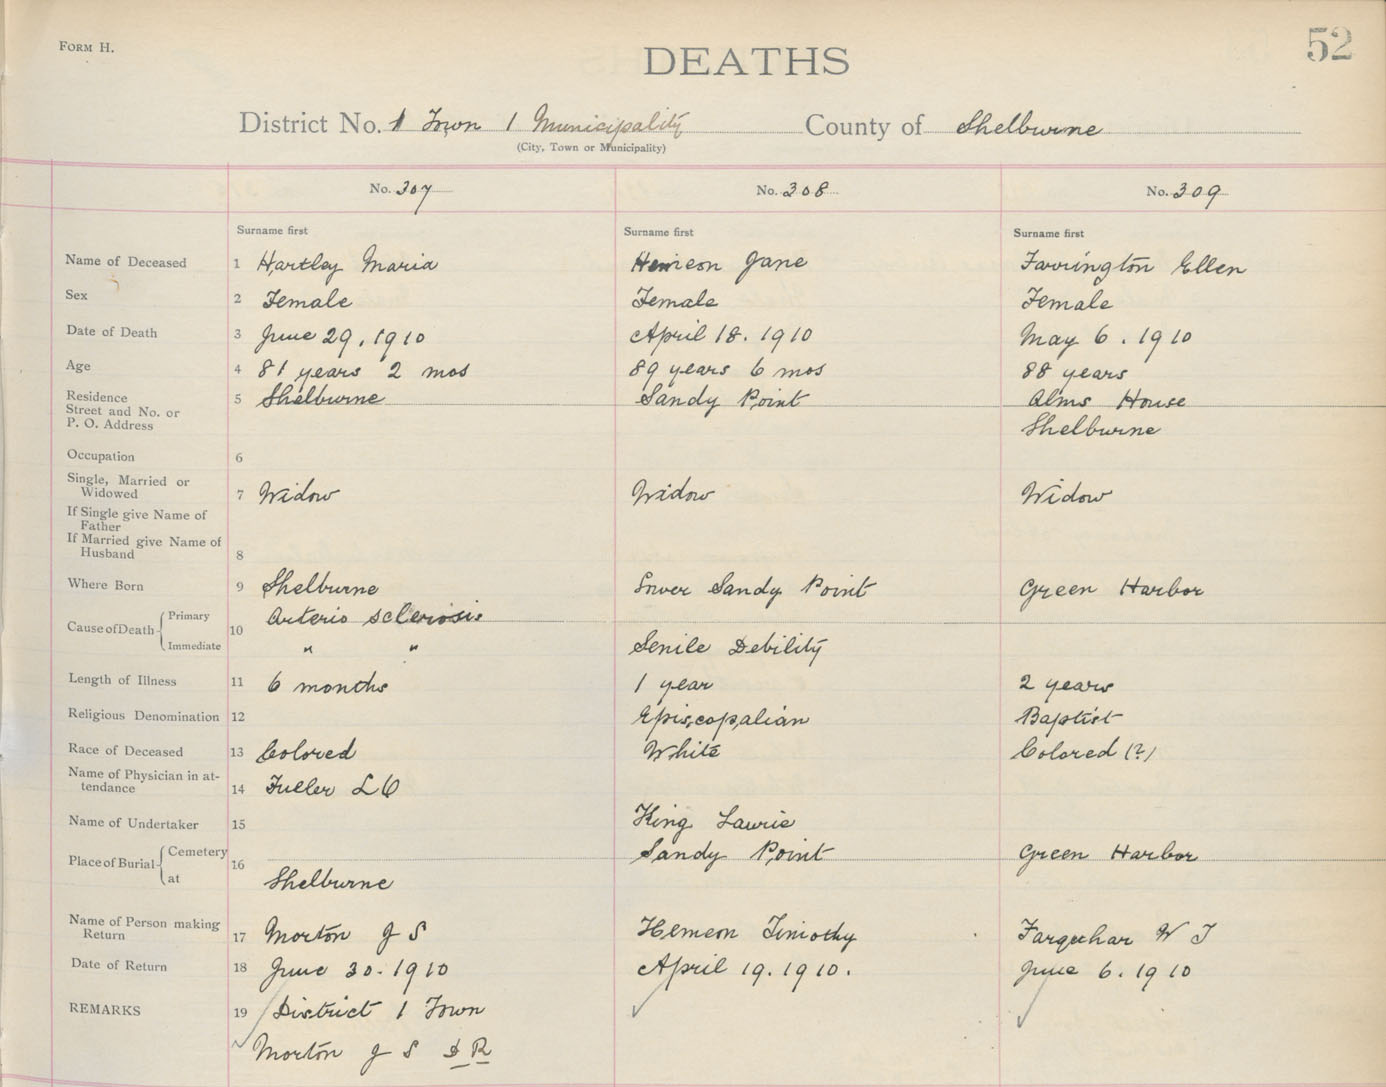 FORM H.
52
DEATHS
District No. 1 Town 1 Municipality County of Shelburne
(City, Town or Municipality)
No. 307 No. 308 No. 309
Surname first Surname first Surname first
Name of Deceased 1 Hartley Maria Hemeon Jane Farrington Ellen
Sex 2 Female Female Female
Date of Death 3 June 29, 1910 April 18. 1910 May 6. 1910
Age 4 81 years 2 mos 89 years 6 mos 88 years
Residence 5 Shelburne Sandy Point Alms House
Street and No. or
P. O. Address Shelburne
Occupation 6
Single, Married or
Widowed 7 Widow Widow Widow
If Single give Name of
Father
If Married give Name of
Husband 8
Where Born 9 Shelburne Lower Sandy Point Green Harbor
Cause of Death Primary 10 Arterio sclerosis
Immediate " " Senile Debility
Length of Illness 11 6 months 1 year 2 years
Religious Denomination 12 Episcopalian Baptist
Race of Deceased 13 Colored White Colored (?)
Name of Physician in at-
tendance 14 Fuller L O
Name of Undertaker 15 King Laurie
Place of Burial Cemetery 16 Sandy Point Green Harbor
at Shelburne
Name of Person making
Return 17 Morton J S Hemeon Timothy Farquhar W J
Date of Return 18 June 30. 1910 April 19. 1910. June 6. 1910
REMARKS 19 District 1 Town
Morton J S D R